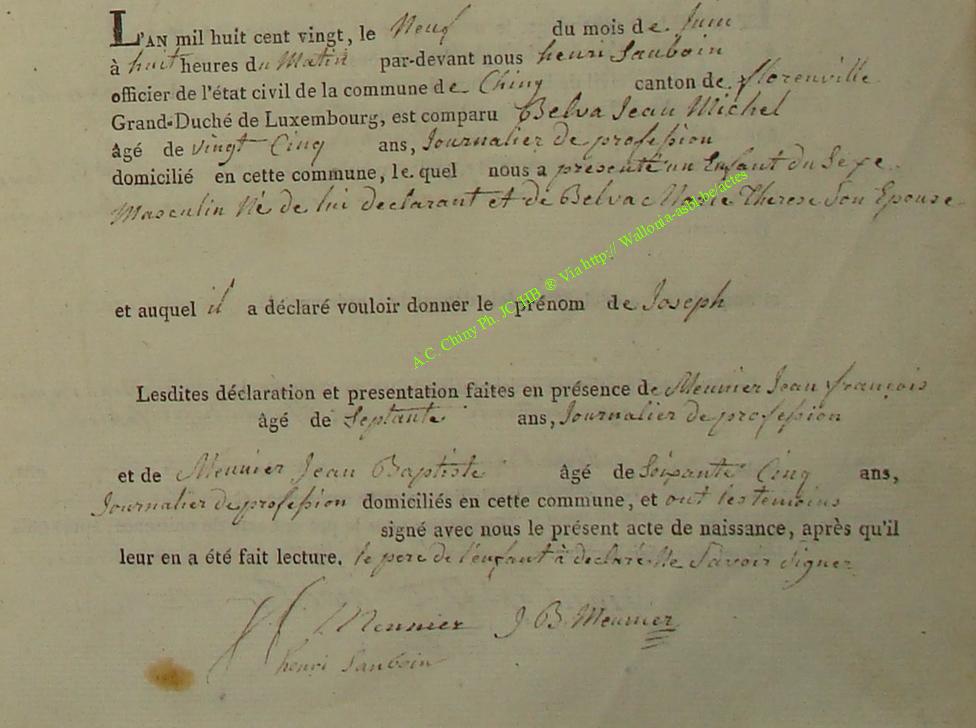 L'AN mil huit cent vingt, le Neuf du mois de Juin
à huit heures du Matin par-devant nous henri Sauboin
officier de l'état civil de la commune de Chiny canton de florenville
Grand-Duché de Luxembourg, est comparu Belva Jean Michel
âgé de vingt Cinq ans, Journalier de profession
domicilié en cette commune, le quel nous a présenté un Enfant du Sexe
Masculin Né de lui declarant et de Belva Marie Therese Son Epouse
et auquel il a déclaré vouloir donner le prénom de Joseph
A.C. Chiny Ph. JC HB ® Via http:// Wallonia-asbl.be/actes
Lesdites déclaration et presentation faites en présence de Meunier Jean françois
âgé de Septante ans, Journalier de profession
et de Meunier Jean Baptiste âgé de Soixante Cinq ans,
Journalier de profession domiciliés en cette commune, et ont les temoins
signé avec nous le présent acte de naissance, après qu'il
leur en a été fait lecture. le pere de l'enfant à declaré Ne Savoir Signer
Meunier J B Meunier
henri Sauboin